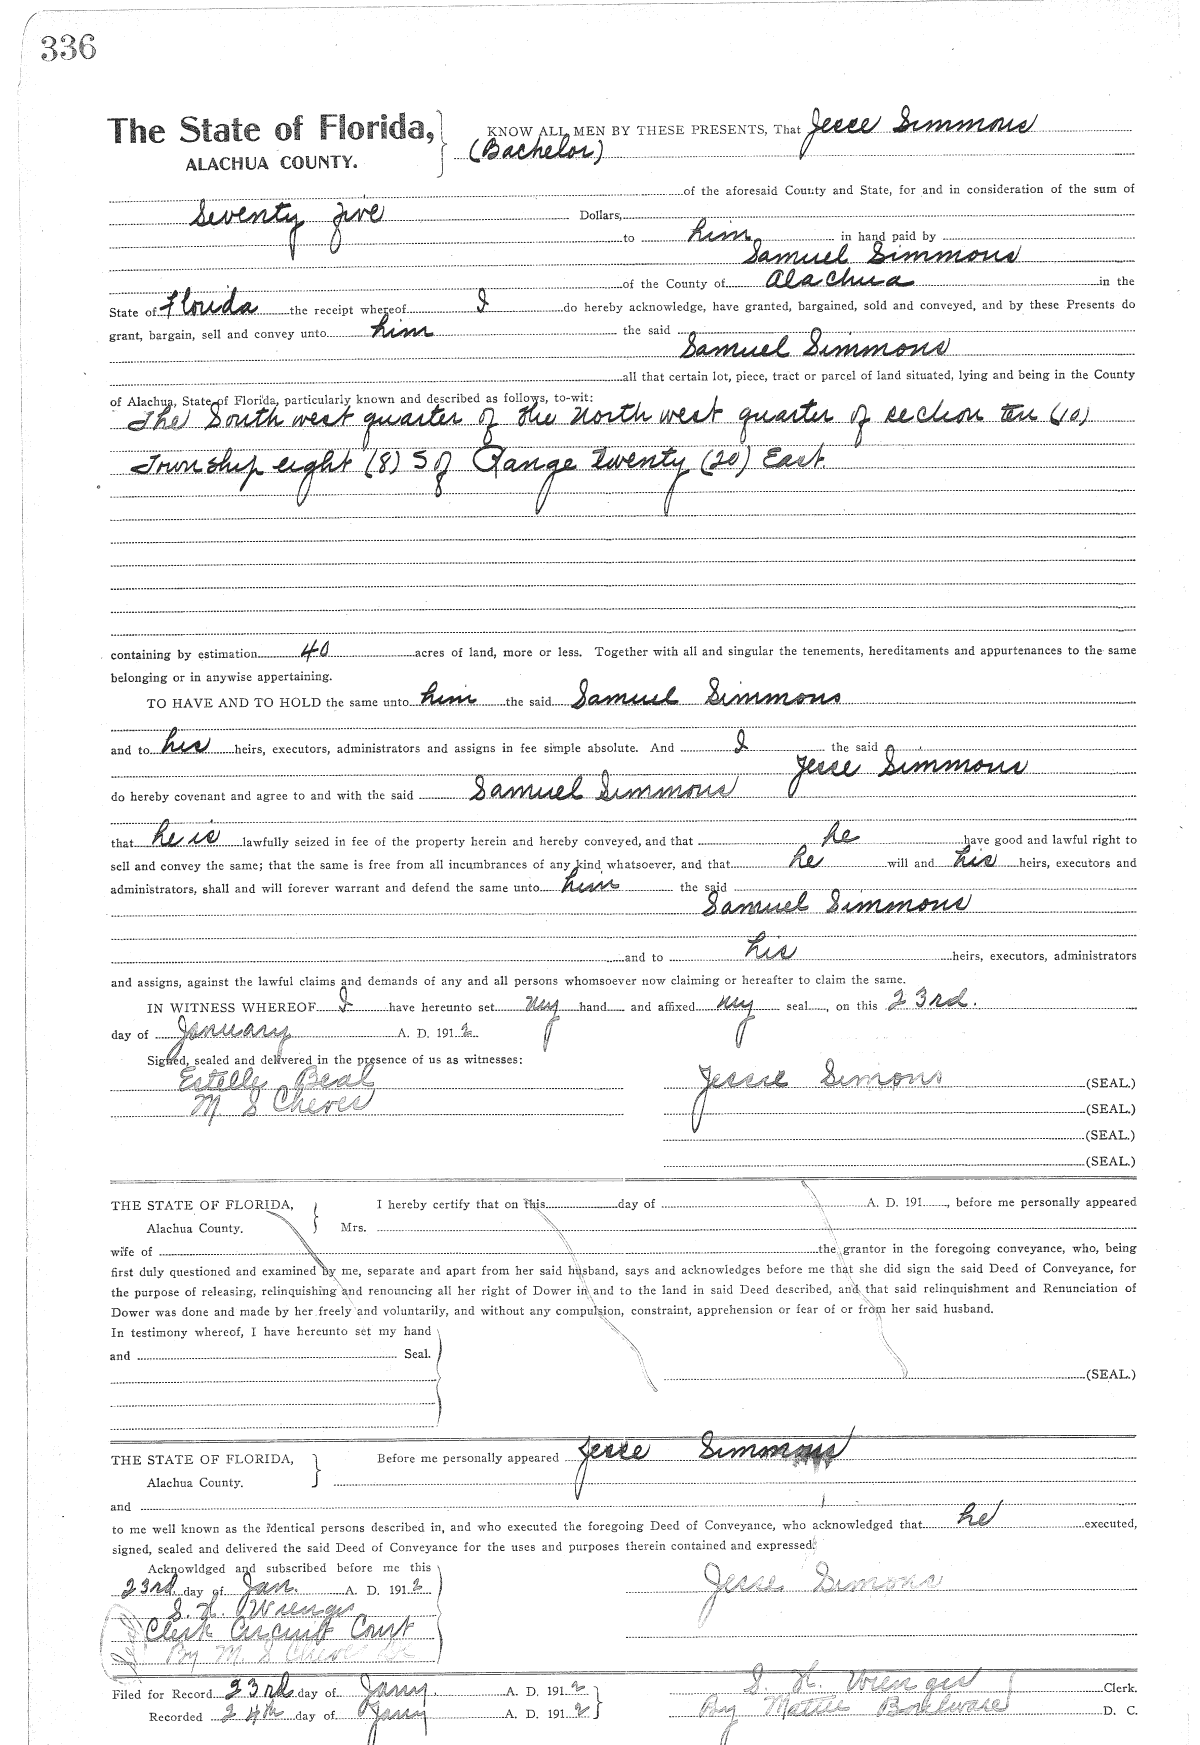 336
The State of Florida,
ALACHUA COUNTY.
KNOW ALL MEN BY THESE PRESENTS, That Jesse Simmons
(Bachelor)
of the aforesaid County and State, for and in consideration of the sum of
Seventy five Dollars,
to him in hand paid by
Samuel Simmons
of the County of Alachua in the
State of Florida the receipt whereof I do hereby acknowledge, have granted, bargained, sold and conveyed, and by these Presents do
grant, bargain, sell and convey unto him the said
Samuel Simmons
all that certain lot, piece, tract or parcel of land situated, lying and being in the County
of Alachua, State of Florida, particularly known and described as follows, to-wit:
The South west quarter of the north west quarter of section ten (10)
Township eight (8) S of Range twenty (20) East
containing by estimation 40 acres of land, more or less. Together with all and singular the tenements, hereditaments and appurtenances to the same
belonging or in anywise appertaining.
TO HAVE AND TO HOLD the same unto him the said Samuel Simmons
and to his heirs, executors, administrators and assigns in fee simple absolute. And I the said
Jesse Simmons
do hereby covenant and agree to and with the said Samuel Simmons
that he is lawfully seized in fee of the property herein and hereby conveyed, and that he have good and lawful right to
sell and convey the same; that the same is free from all incumbrances of any kind whatsoever, and that he will and his heirs, executors and
administrators, shall and will forever warrant and defend the same unto him the said
Samuel Simmons
and to his heirs, executors, administrators
and assigns, against the lawful claims and demands of any and all persons whomsoever now claiming or hereafter to claim the same.
IN WITNESS WHEREOF I have hereunto set my hand and affixed my seal, on this 23rd.
day of January A. D. 1912.
Signed, sealed and delivered in the presence of us as witnesses:
Estelle Beal
M S Cheves
Jessie Simons (SEAL.)
(SEAL.)
(SEAL.)
(SEAL.)
THE STATE OF FLORIDA,
Alachua County.
I hereby certify that on this day of A. D. 191 , before me personally appeared
Mrs.
wife of the grantor in the foregoing conveyance, who, being
first duly questioned and examined by me, separate and apart from her said husband, says and acknowledges before me that she did sign the said Deed of Conveyance, for
the purpose of releasing, relinquishing and renouncing all her right of Dower in and to the land in said Deed described, and that said relinquishment and Renunciation of
Dower was done and made by her freely and voluntarily, and without any compulsion, constraint, apprehension or fear of or from her said husband.
In testimony whereof, I have hereunto set my hand
and Seal.
(SEAL.)
THE STATE OF FLORIDA,
Alachua County.
Before me personally appeared Jesse Simmons
and
to me well known as the identical persons described in, and who executed the foregoing Deed of Conveyance, who acknowledged that he executed,
signed, sealed and delivered the said Deed of Conveyance for the uses and purposes therein contained and expressed.
Acknowldged and subscribed before me this
23rd day of Jan. A. D. 1912
S. H. Wienges
Clerk Circuit Court
By M S Cheves
Jesse Simons
Filed for Record 23rd day of Jany. A. D. 1912
Recorded 24th day of Jany A. D. 1912
S. H. Wienges Clerk.
By Mattie D. C.